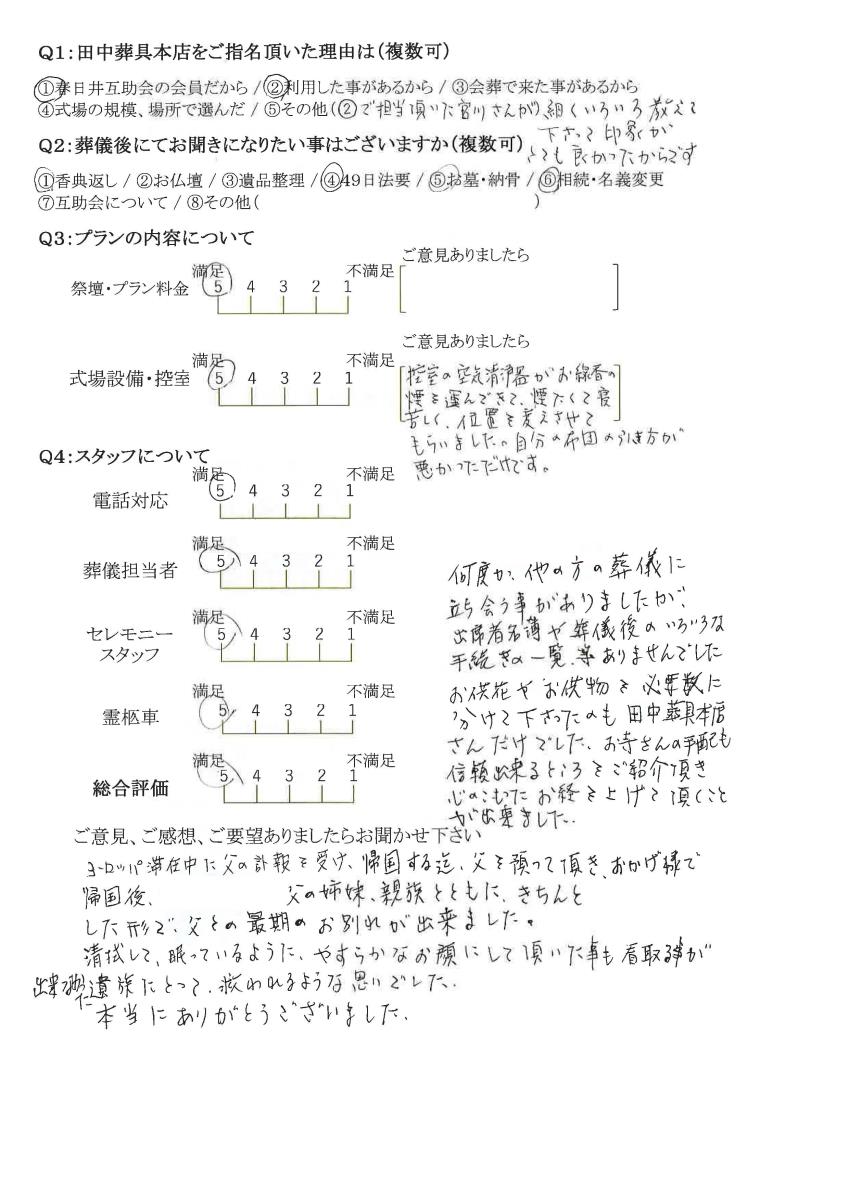 Q1:田中葬具本店をご指名頂いた理由は(複数可)
①春日井互助会の会員だから / ②利用した事があるから / ③会葬で来た事があるから
④式場の規模、場所で選んだ / ⑤その他(②で担当頂いた宮川さんが、細くいろいろ教えて
下さって印象が
とても良かったからです
Q2:葬儀後にてお聞きになりたい事はございますか(複数可)
①香典返し / ②お仏壇 / ③遺品整理 / ④49日法要 / ⑤お墓・納骨 / ⑥相続・名義変更
⑦互助会について / ⑧その他( )
Q3:プランの内容について
ご意見ありましたら
満足 不満足
祭壇・プラン料金 5 4 3 2 1
ご意見ありましたら
満足 不満足
式場設備・控室 5 4 3 2 1
控室の空気清浄器がお線香の
煙を運んできて、煙たくて寝
苦しく、位置を変えさせて
もらいました。自分の布団のひき方が
悪かっただけです。
Q4:スタッフについて
満足 不満足
電話対応 5 4 3 2 1
満足 不満足
葬儀担当者 5 4 3 2 1
満足 不満足
セレモニー
スタッフ 5 4 3 2 1
満足 不満足
霊柩車 5 4 3 2 1
満足 不満足
総合評価 5 4 3 2 1
何度か、他の方の葬儀に
立ち会う事がありましたが、
出席者名簿や葬儀後のいろいろな
手続きの一覧、等ありませんでした
お供花やお供物を必要数に
分けて下さったのも田中葬具本店
さんだけでした、お寺さんの手配も
信頼出来るところをご紹介頂き
心のこもったお経を上げて頂くこと
が出来ました.
ご意見、ご感想、ご要望ありましたらお聞かせ下さい
ヨーロッパ滞在中に父の訃報を受け、帰国する迄、父を預って頂き、おかげ様で
帰国後、 父の姉妹、親族とともに、きちんと
した形で、父との最期のお別れが出来ました。
清拭して、眠っているように、やすらかなお顔にして頂いた事も看取る事が
遺族にとって、救われるような思いでした.
本当にありがとうございました.